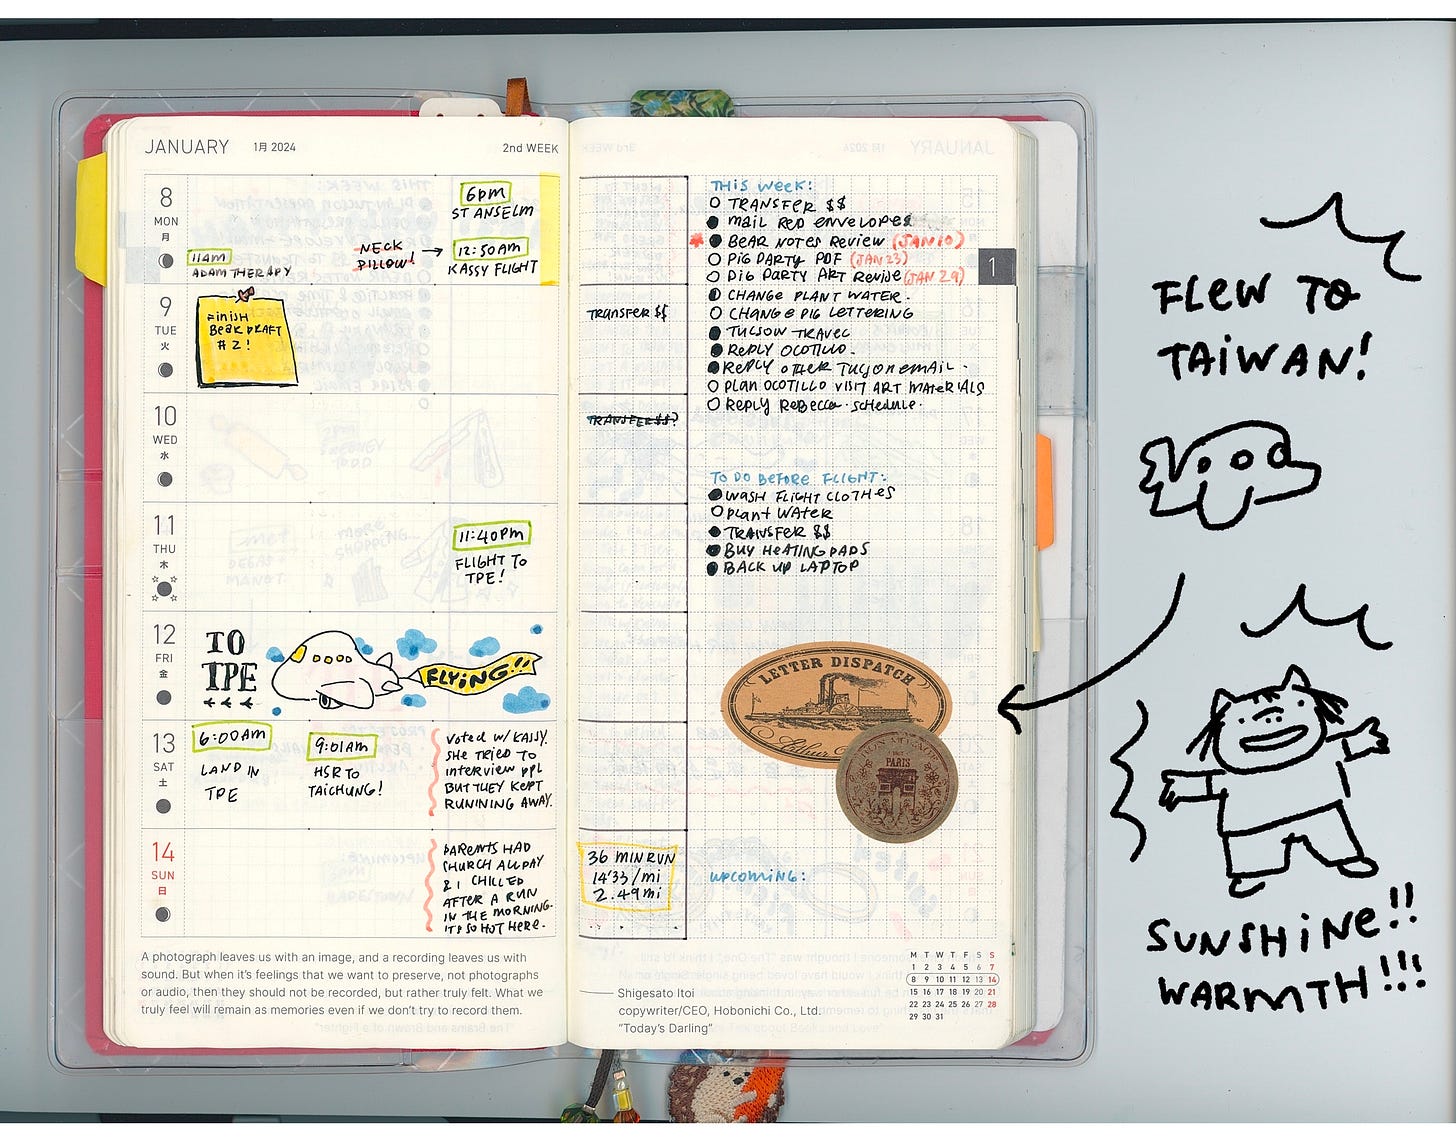 JANUARY 1月 2024 2nd WEEK
8
MON
月
11am
ADAM THERAPY
NECK
PILLOW!
6pm
ST ANSELM
12:50AM
KASSY FLIGHT
9
TUE
火
FiNiSH
BEAR DRAFT
#2!
10
WED
水
11
THU
木
11:40PM
FLIGHT TO
TPE!
12
FRI
金
TO
TPE
FLYiNG!!
13
SAT
土
6:00AM
LAND IN
TPE
9:01AM
HSR TO
TAICHUNG!
Voted w/ KASSY.
SHE TRIED TO
interview ppl
BUT THEY KEPT
RUNNING AWAY.
14
SUN
日
PARENTS HAD
CHURCH ALL DAY
& I CHILLED
AFTER A RUN
IN THE MORNING.
IT'S SO HOT HERE.
A photograph leaves us with an image, and a recording leaves us with
sound. But when it's feelings that we want to preserve, not photographs
or audio, then they should not be recorded, but rather truly felt. What we
truly feel will remain as memories even if we don't try to record them.
TRANSFER $$
TRANSFER $$?
36 MIN RUN
14'33/mi
2.49mi
THIS WEEK:
TRANSFER $$
MAIL RED ENVELOPES
BEAR NOTES REVIEW (JAN 10)
PIG PARTY PDF (JAN 23)
PIG PARTY ART REVISE (JAN 29)
CHANGE PLANT WATER.
CHANGE PIG LETTERING
TUCSON TRAVEL
REPLY OCOTILLO.
REPLY OTHER TUCSON EMAIL.
PLAN OCOTILLO VISIT ART MATERIALS
REPLY REBECCA. SCHEDULE.
TO DO BEFORE FLIGHT:
WASH FLIGHT CLOTHES
PLANT WATER
TRANSFER $$
BUY HEATING PADS
BACK UP LAPTOP
1
LETTER DISPATCH
Arthur
MON VOYAGE
PARIS
UPCOMING:
M T W T F S S
1 2 3 4 5 6 7
8 9 10 11 12 13 14
15 16 17 18 19 20 21
22 23 24 25 26 27 28
29 30 31
Shigesato Itoi
copywriter/CEO, Hobonichi Co., Ltd.
"Today's Darling"
FLEW TO
TAiWAN!
SUNSHiNE!!
WARMTH!!!